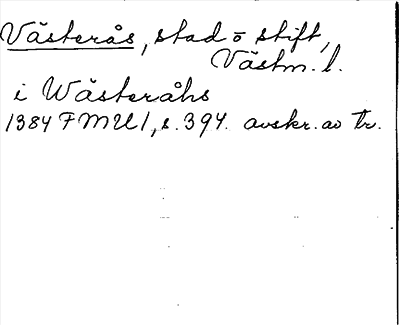 Västerås, stad o stift,
Västm. l.
i Wästeråhs
1384 FMU 1, s. 394. avskr. av tr.